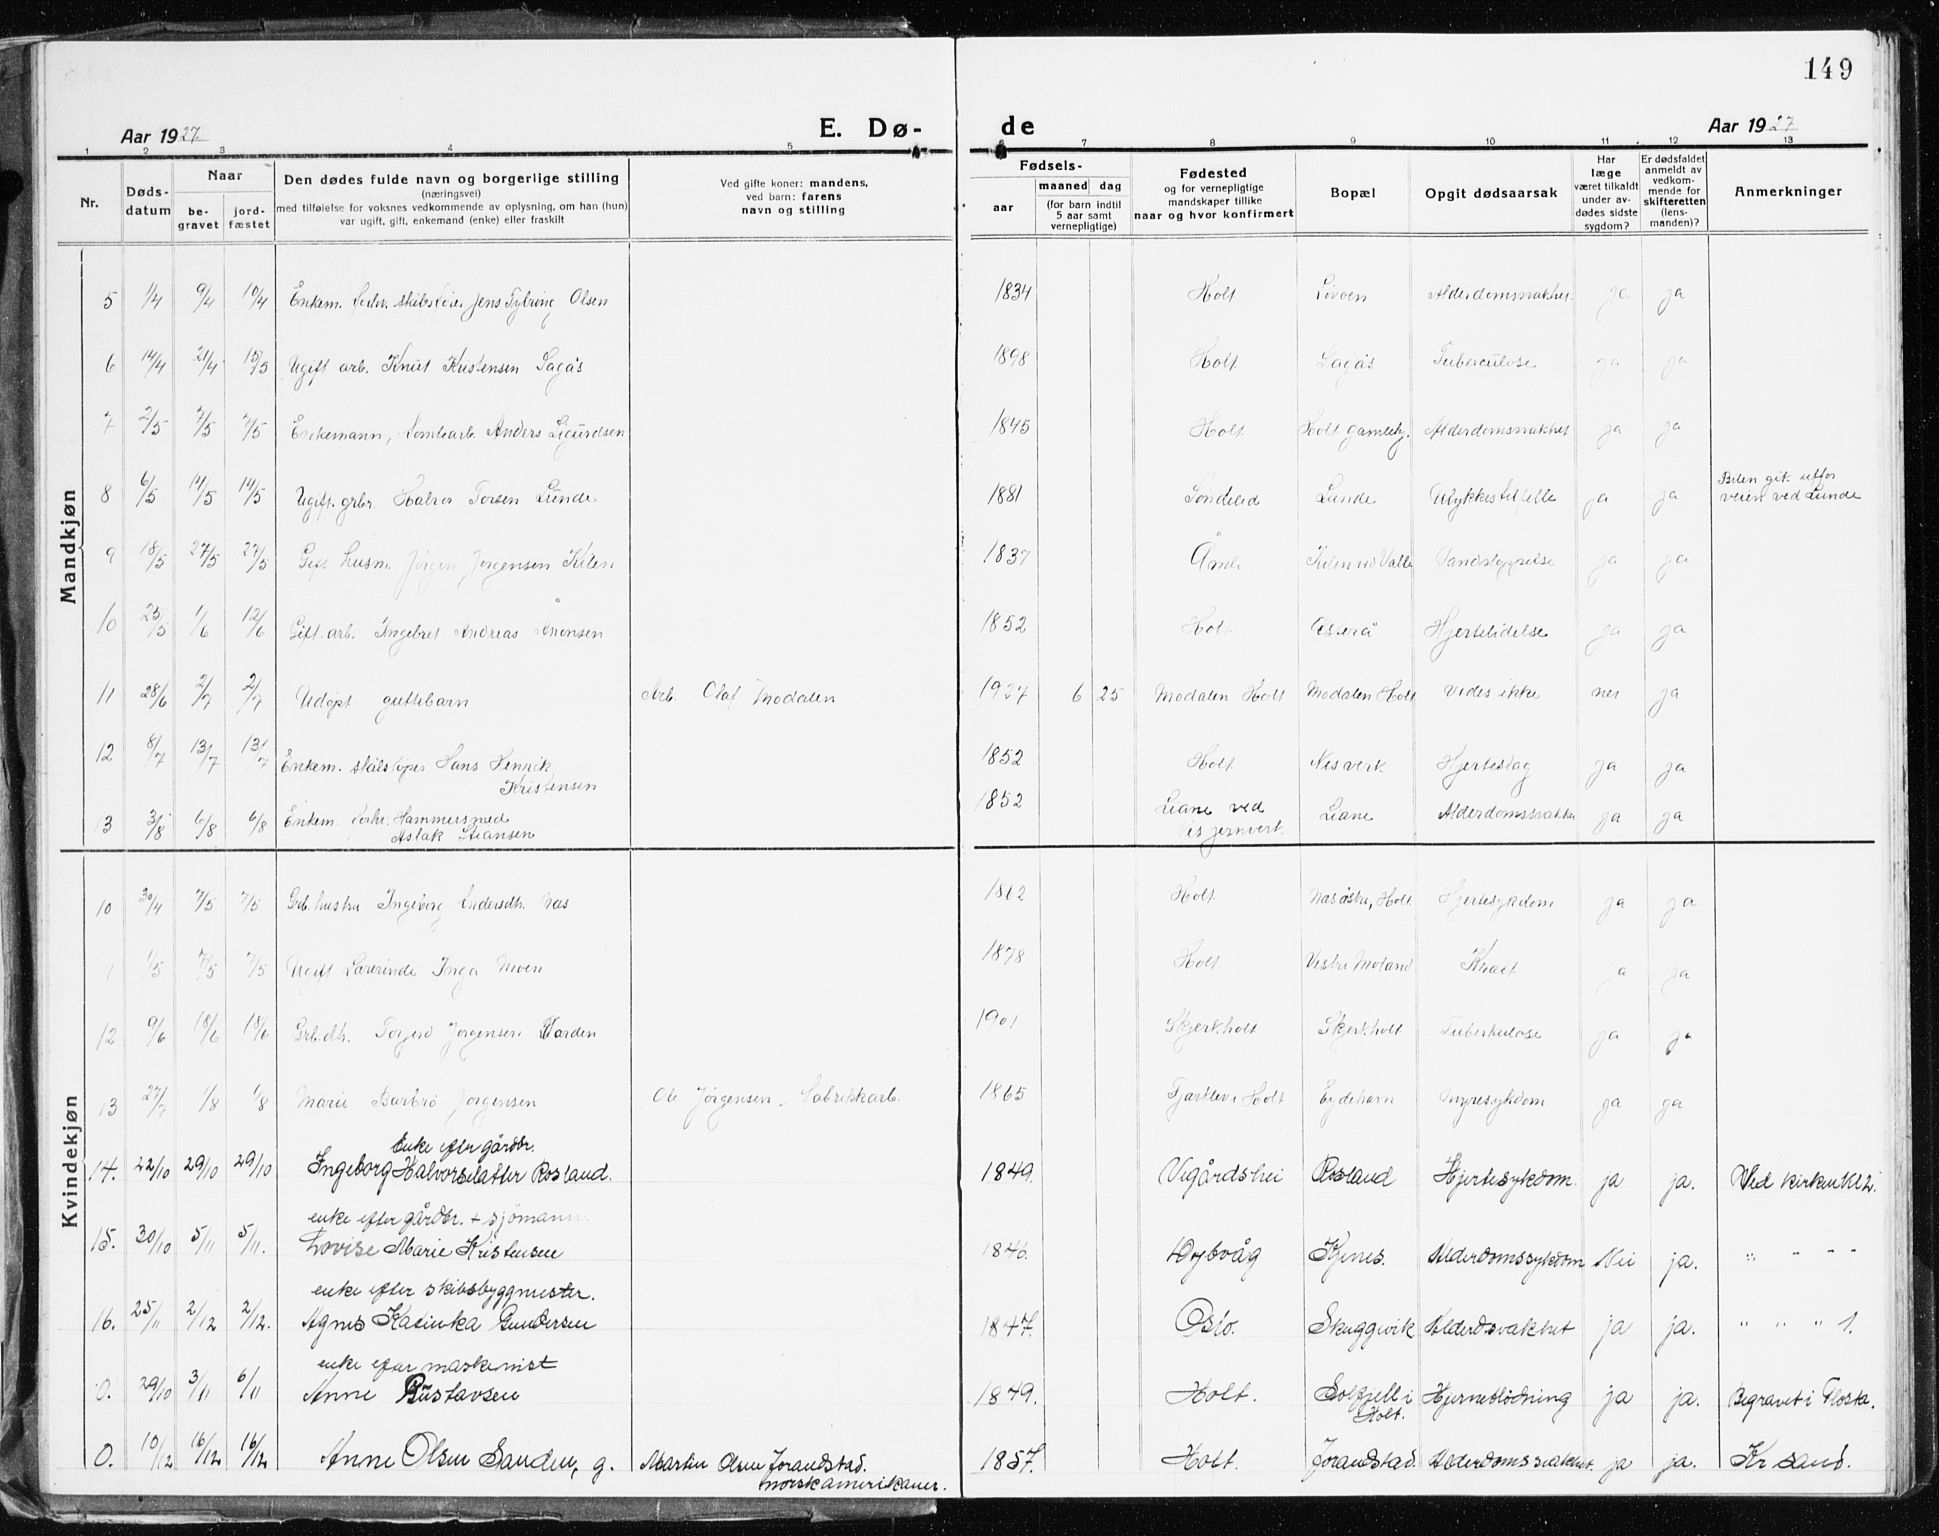 149
Aar 1927
E. Dø-
de
Aar 1927
1 2 3 4 5 6 7 8 9 10 11 12 13
Nr.
Døds-
datum
Naar
be-
gravet
jord-
fæstet
Den dødes fulde navn og borgerlige stilling
(næringsvei)
med tilføielse for voksnes vedkommende av oplysning, om han (hun)
var ugift, gift, enkemand (enke) eller fraskilt
Ved gifte koner: mandens,
ved barn: farens
navn og stilling
Fødsels-
aar
maaned dag
(for barn indtil
5 aar samt
vernepligtige)
Fødested
og for vernepligtige
mandskaper tillike
naar og hvor konfirmert
Bopæl
Opgit dødsaarsak
Har
læge
været tilkaldt
under av-
dødes sidste
sygdom?
Er dødsfaldet
anmeldt av
vedkom-
mende for
skifteretten
(lens-
manden)?
Anmerkninger
Mandkjøn
5 1/4 9/4 10/4 Enkem. Jens Tybring Olsen 1834 Holt Alderdomssvakhet ja ja
6 14/4 21/4 15/5 Ugift arb. Knut Kristensen Lagås 1898 Holt Lagås Tuberculose ja ja
7 2/5 7/5 7/5 Enkemann, Anders Sigurdsen 1845 Holt Holt gamlehj. Alderdomssvakhet ja ja
8 6/5 14/5 14/5 Ugift. grbr. Halvor Torsen Lunde 1881 Søndeled Lunde Ulykkestilfelle ja ja Bilen gik utfor
veien ved Lunde
9 18/5 27/5 27/5 Gift husm. Jørgen Jørgensen Kilen 1837 Åmli Kilen ved Valle ja ja
10 25/5 1/6 12/6 Gift. arb. Ingebret Andreas Ånonsen 1852 Holt Osterå Hjertelidelse ja ja
11 28/6 2/7 2/7 Udøpt guttebarn Arb. Olaf Modalen 1927 6 25 Modalen Holt Modalen Holt vides ikke nei ja
12 8/7 13/7 13/7 Enkem. Hans Henrik
Kristensen 1852 Holt Nesverk Hjerteslag ja ja
13 3/8 6/8 6/8 Enkem. forhv. Hammersmed
Aslak Stiansen 1852 Liane ved
Nes jernverk Liane Alderdomssvakhe ja ja
Kvindekjøn
10 30/4 7/5 7/5 Grb. hustru Ingeborg Andersdtr. Næs 1862 Holt Næs østre, Holt Hjertesykdom ja ja
1 1/5 7/5 7/5 Ugift Lærerinde Inga Moen 1878 Holt Vestre Moland Kræft ja ja
12 9/6 18/6 18/6 Grb. dtr. Torjerd Jørgensen Garden 1901 Skjerkholt Skjerkholt Tuberkulose ja ja
13 27/7 1/8 1/8 Marie Barbro Jørgensen Ole Jørgensen, Fabrikkarb. 1865 Fjærkleiv Holt Eydehavn Nyresykdom ja ja
14. 22/10 29/10 29/10 Enke efter gårdbr.
Ingeborg Halvorsdatter Rosland. 1849. Vegårdshei Rosland Hjertesykdom. ja ja. Ved kirken kl 2.
15. 30/10 5/11 5/11. enke efter gårdbr. + sjömann.
Lovise Marie Kristensen 1846. Dybvåg Kjenes. Alderdomssykdom Nei ja. " - - -
16. 25/11 2/12 2/12. enke efter skibsbyggmester.
Agnes Katinka Gundersen 1847. Oslo. Skuggvik Alderdsvakhet ja ja. " " " 1.
0. 29/10 3/11 6/11 enke efter maskinist
Anne Gustavsen 1849. Holt. Solfjell i
Holt. Hjerneblödning ja ja. Begravet i Flosta.
0. 10/12 16/12 16/12 Anne Olsen Sanden, g. Martin Olsen Jorandstad.
norskamerikaner. 1857. Holt. Jorandstad. Alderdomssvakhet. ja ja. Kr sand.